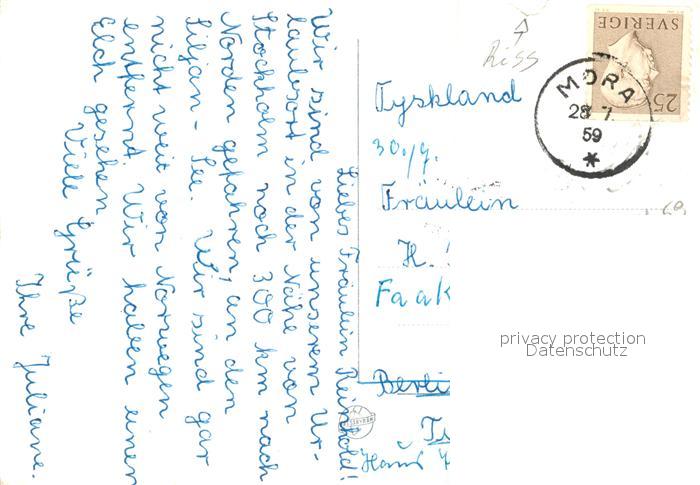 Liebes Fräulein Reinhold!
Wir sind von unserem Ur-
laubsort in der Nähe von
Stockholm noch 300 km nach
Norden gefahren, an den
Siljan-See. Wir sind gar
nicht weit von Norwegen
entfernt. Wir haben einen
Elch gesehen
Viele Grüße
Ihre Juliane.
Riss
SVERIGE
25
MORA
28 7.
59
Tyskland
30./7.
Fräulein
H.
Faak
privacy protection
Datenschutz
Berli